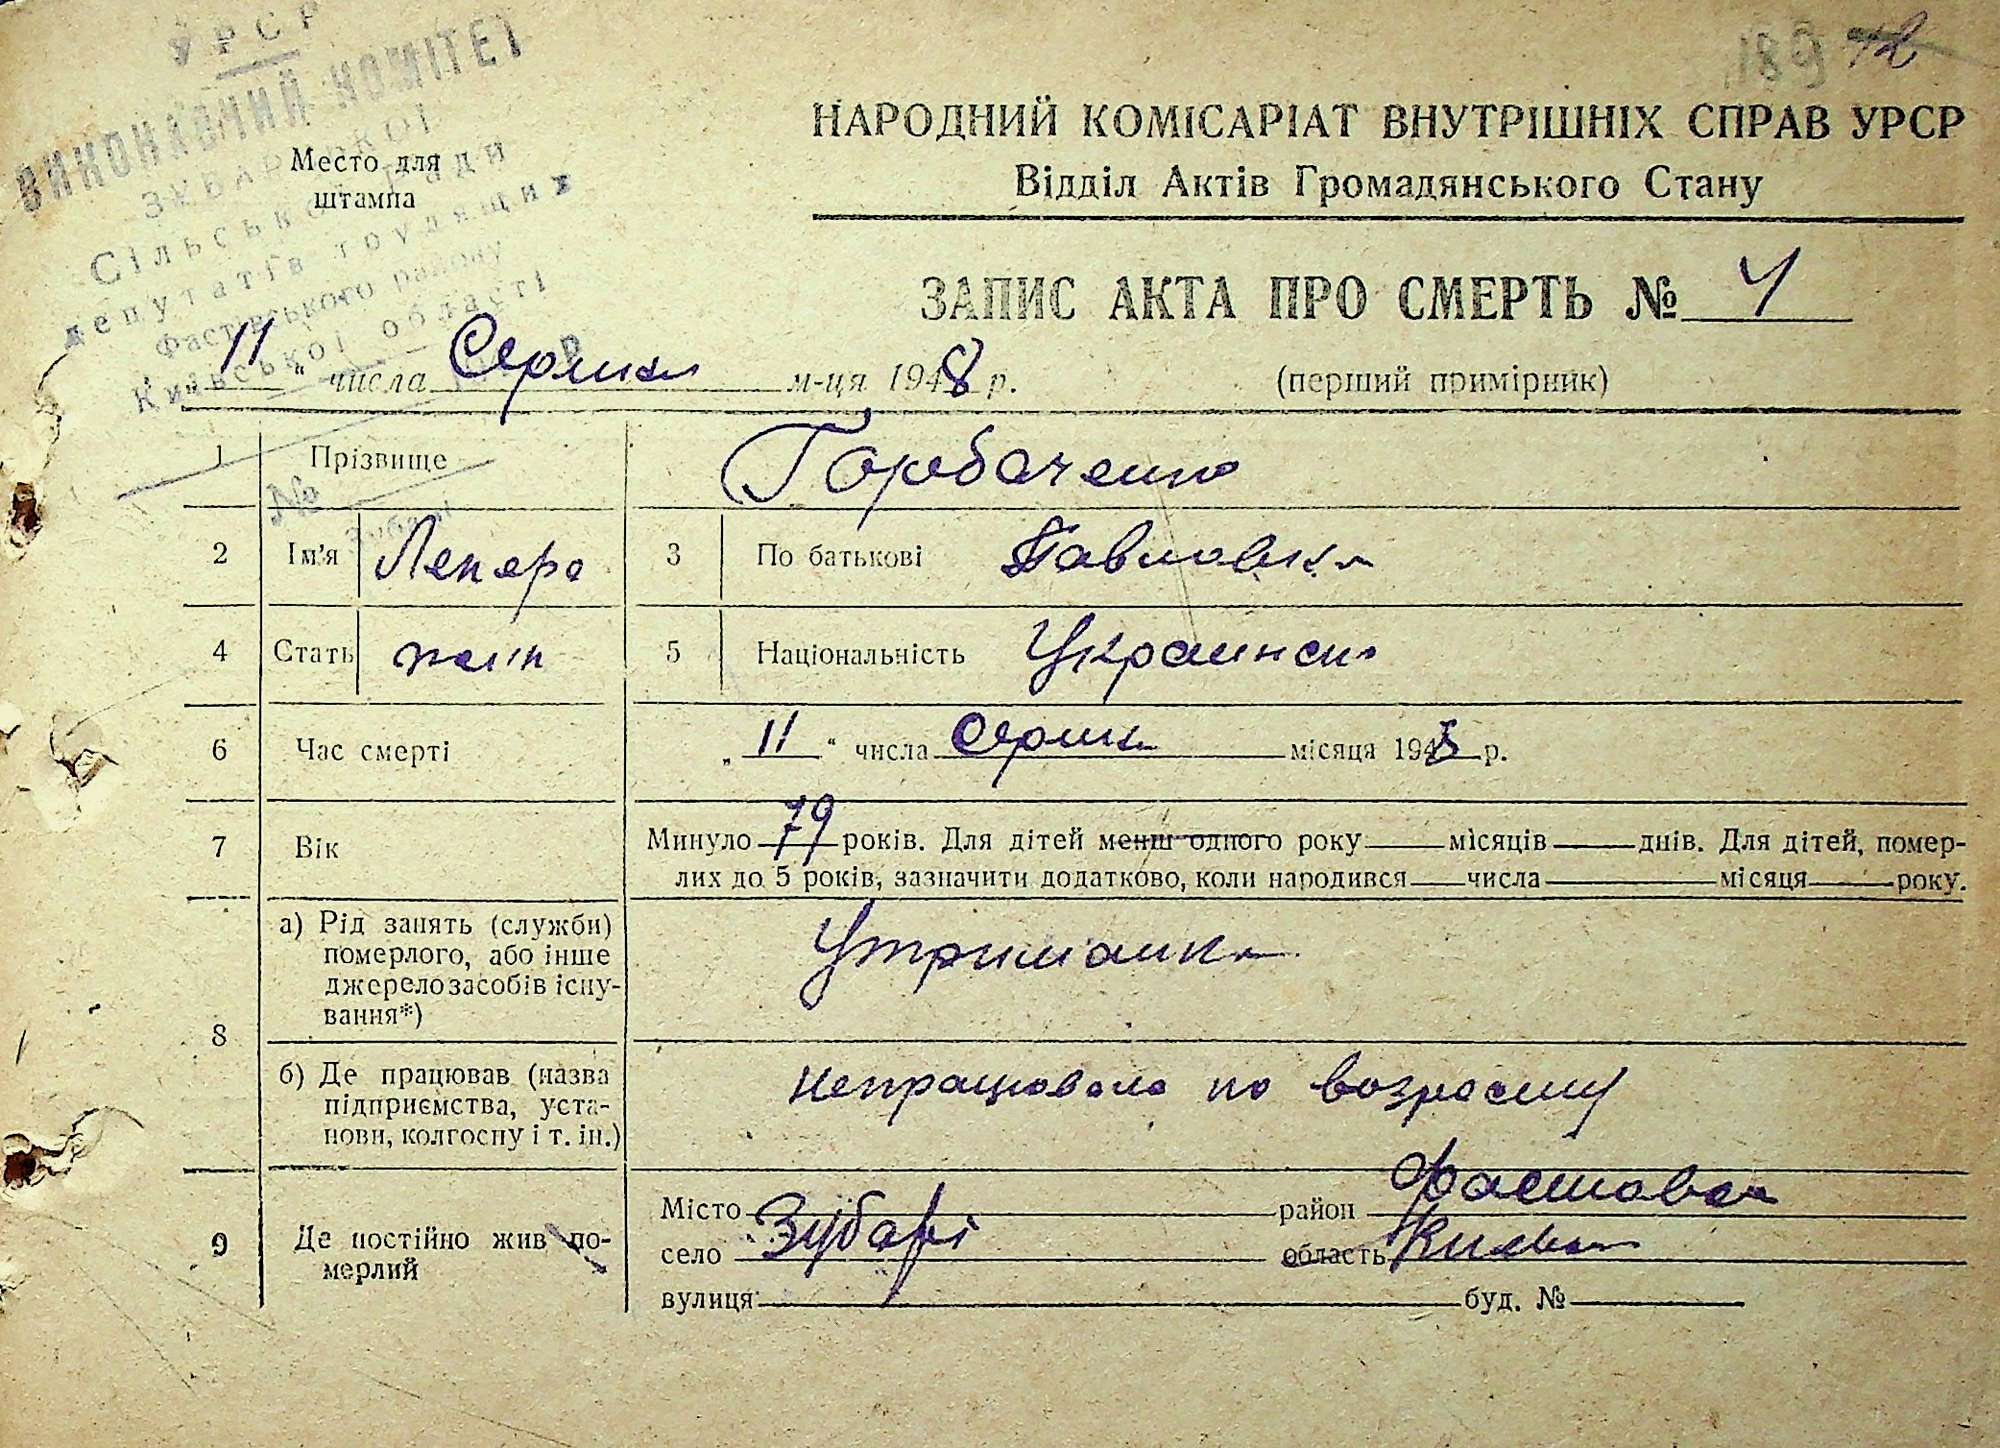 УРСР
ВИКОНАВЧИЙ КОМІТЕТ
ЗУБАРСЬКОЇ
Сільської Ради
депутатів трудящих
Фастівського району
Київської області
Место для
штампа
189 72
НАРОДНИЙ КОМІСАРІАТ ВНУТРІШНІХ СПРАВ УРСР
Відділ Актів Громадянського Стану
ЗАПИС АКТА ПРО СМЕРТЬ № 4
„11“ числа Серпня м-ця 1948 р.
(перший примірник)
1 Прізвище Горбаченко
№
Зубарі
2 Ім'я 3 По батькові Павловна
4 Стать жін 5 Національність Украинська
6 Час смерті „11“ числа Серпня місяця 1948 р.
7 Вік Минуло 79 років. Для дітей менш одного року місяців днів. Для дітей, помер-
лих до 5 років, зазначити додатково, коли народився числа місяця року.
8 а) Рід занять (служби)
померлого, або інше
джерело засобів існу-
вання*)
Утриманка
б) Де працював (назва
підприємства, уста-
нови, колгоспу і т. ін.)
непрацювала по возрасту
9 Де постійно жив по-
мерлий
Місто район Фастовськ
село Зубарі область Київськ
вулиця буд. №